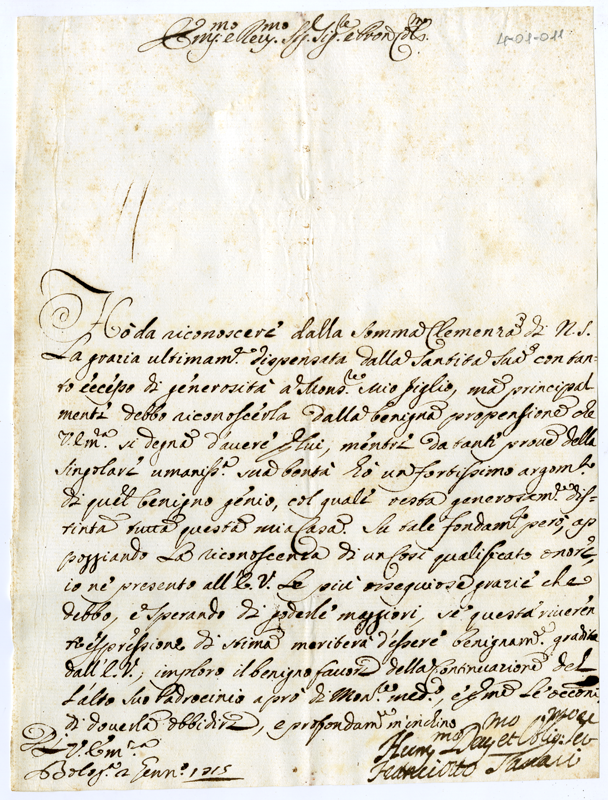 Em.mo e Rev.mo Sig.
4-01-011
Hò da riconoscere dalla somma Clemenza di N. S.
La grazia ultimam.te dispensata dalla Santità Sua con tan-
to eccesso di generosità a Mons.re mio figlio, ma principal
mente debbo riconoscerla dalla benigna propensione che
V. Em.za si degna d'avere p lui, mentre da tante prove della
singolare umaniss.a sua bontà hò un fortissimo argom.to
di quel benigno genio, col quale resta generosam.te dis-
tinta tutta questa mia Casa. Su tale fondam.to però, ap
poggiando la riconoscenza di un così qualificato onore,
io ne presento all'E. V. le più ossequiose grazie che
debbo, e sperando di goderle maggiori, se questa riveren
te espressione di stima meriterà d'essere benignam.te gradita
dall'E. V., imploro il benigno favore della Continuazione del
l'alto suo Padrocinio a prò di Mons.re med.o e à me le occoni
di doverla obbidire, e profondam.te m'inchino
D. V. Em.za
Bolog.a 2 Genn.o 1715
Hum.mo Dev.mo et Oblig.mo Ser.
Francesco